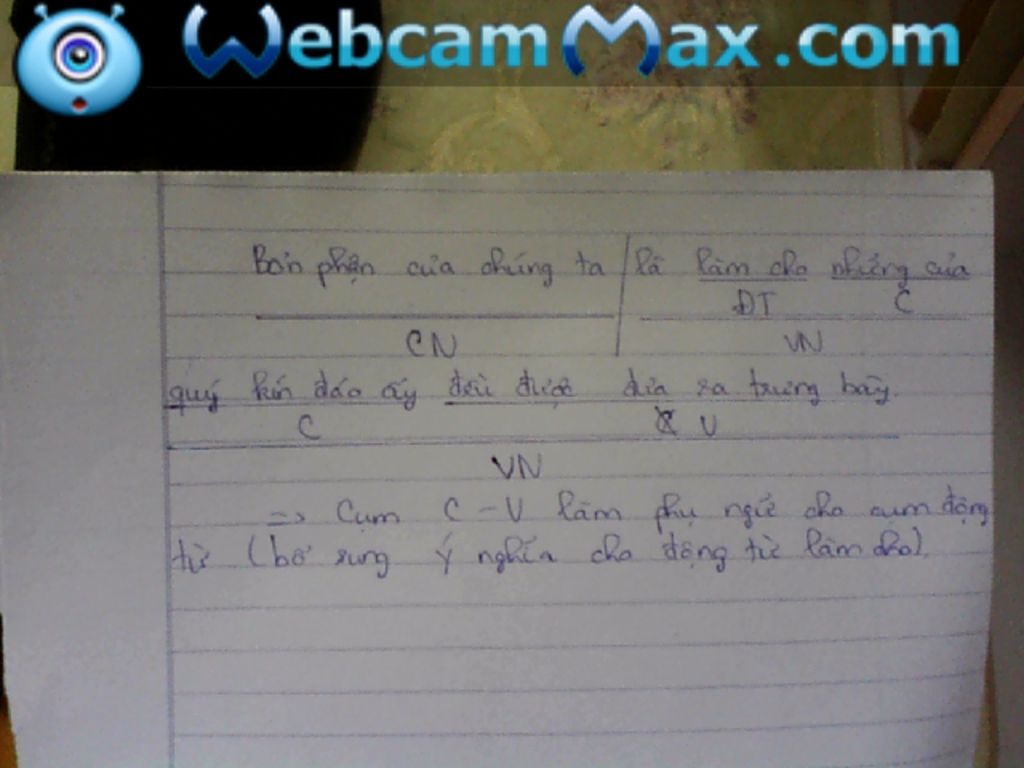 WebcamMax.com
Bổn phận của chúng ta / là làm cho những của
ĐT C
CN VN
quý kín đáo ấy đều được đưa ra trưng bày.
C V
VN
=> Cụm C - V làm phụ ngữ cho cụm động
từ (bổ sung ý nghĩa cho động từ làm cho).